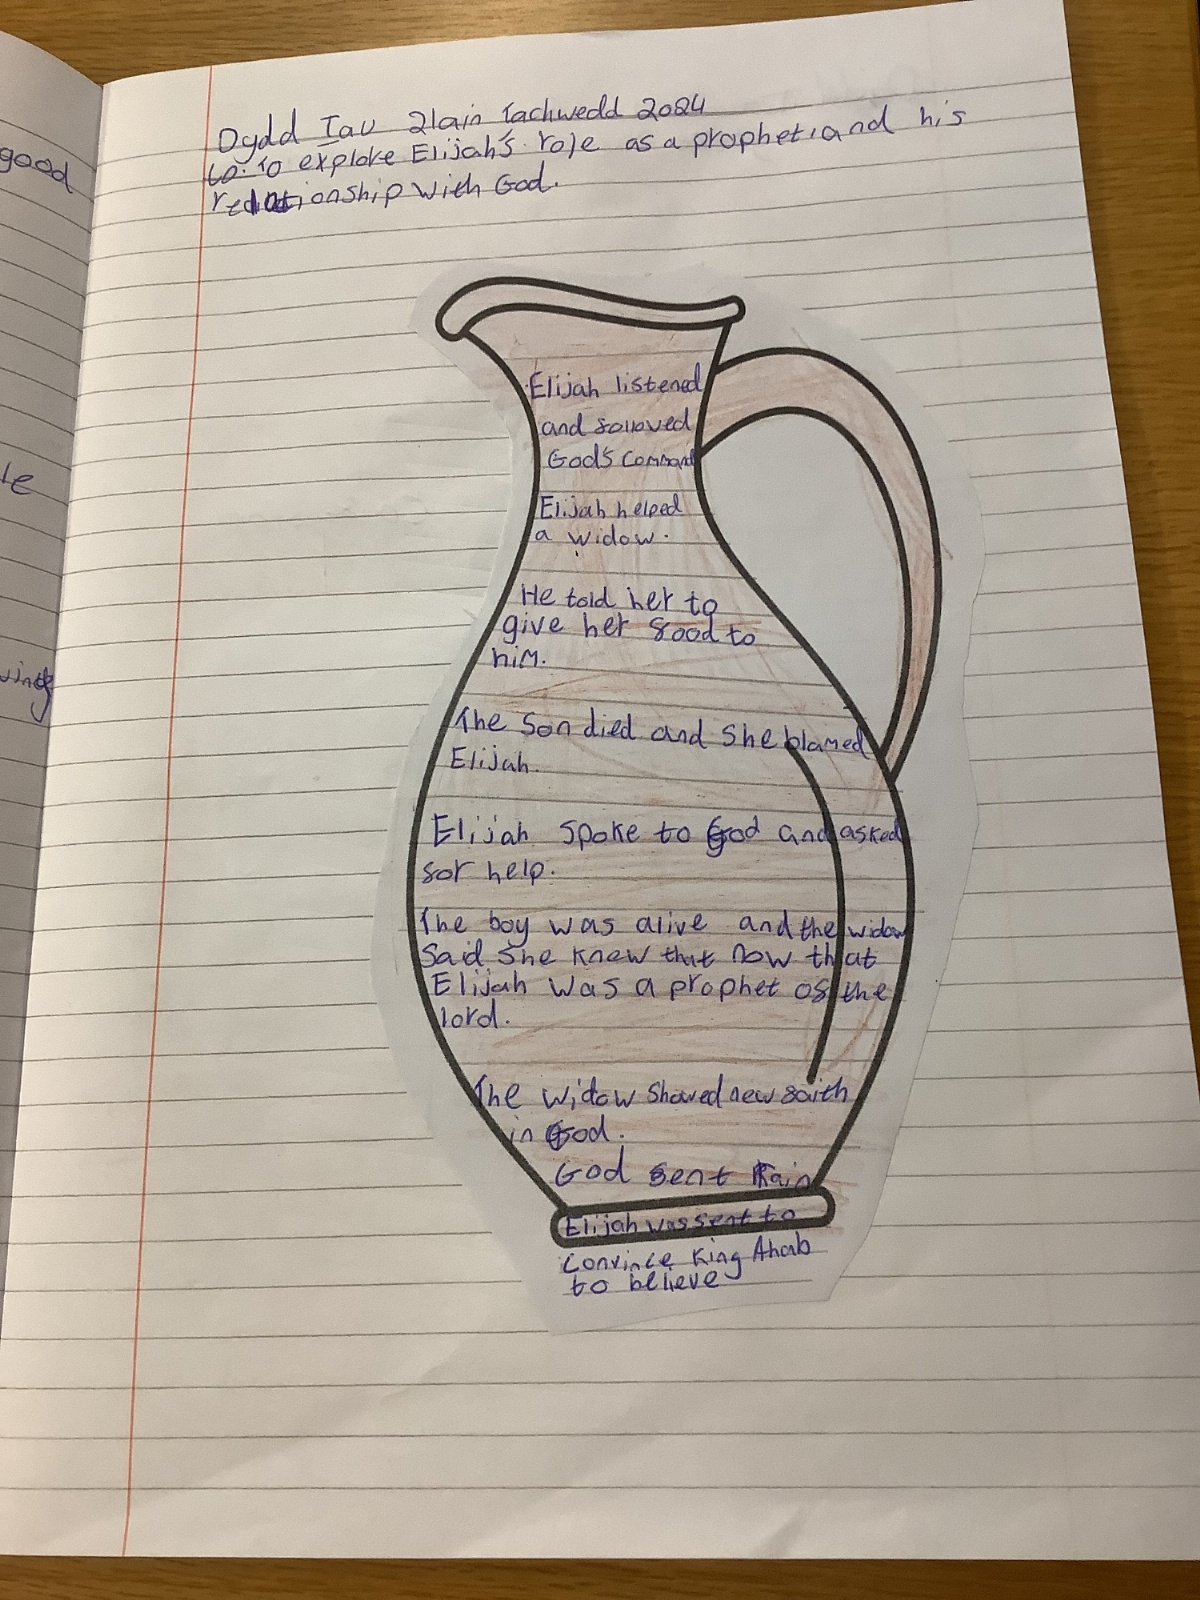 good
le
Dydd Iau 21ain Tachwedd 2024
Lo: To explore Elijah's role as a prophet, and his
relationship with God.
Elijah listened
and followed
God's command
Elijah helped
a widow.
He told her to
give her food to
him.
The son died and she blamed
Elijah.
Elijah spoke to God and asked
for help.
The boy was alive and the widow
said she knew that now that
Elijah was a prophet of the
lord.
The widow showed new faith
in God.
God sent Rain
Elijah was sent to
convince King Ahab
to believe